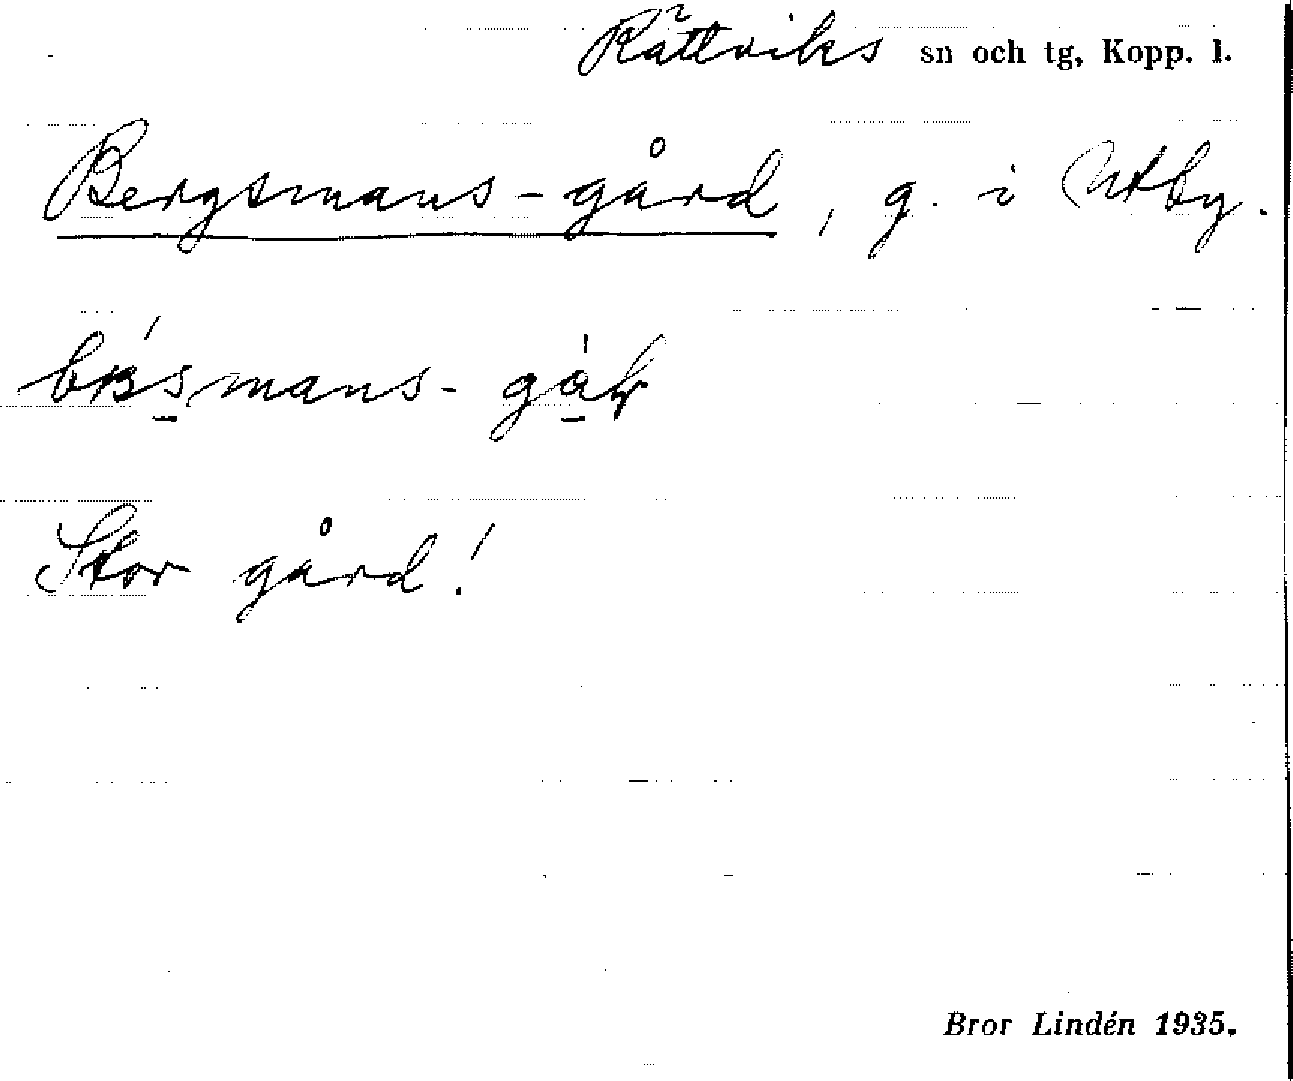 Rättviks sn och tg, Kopp. l.
Bergsmans-gård, g. i Utby.
Stor gård!
Bror Lindén 1935.